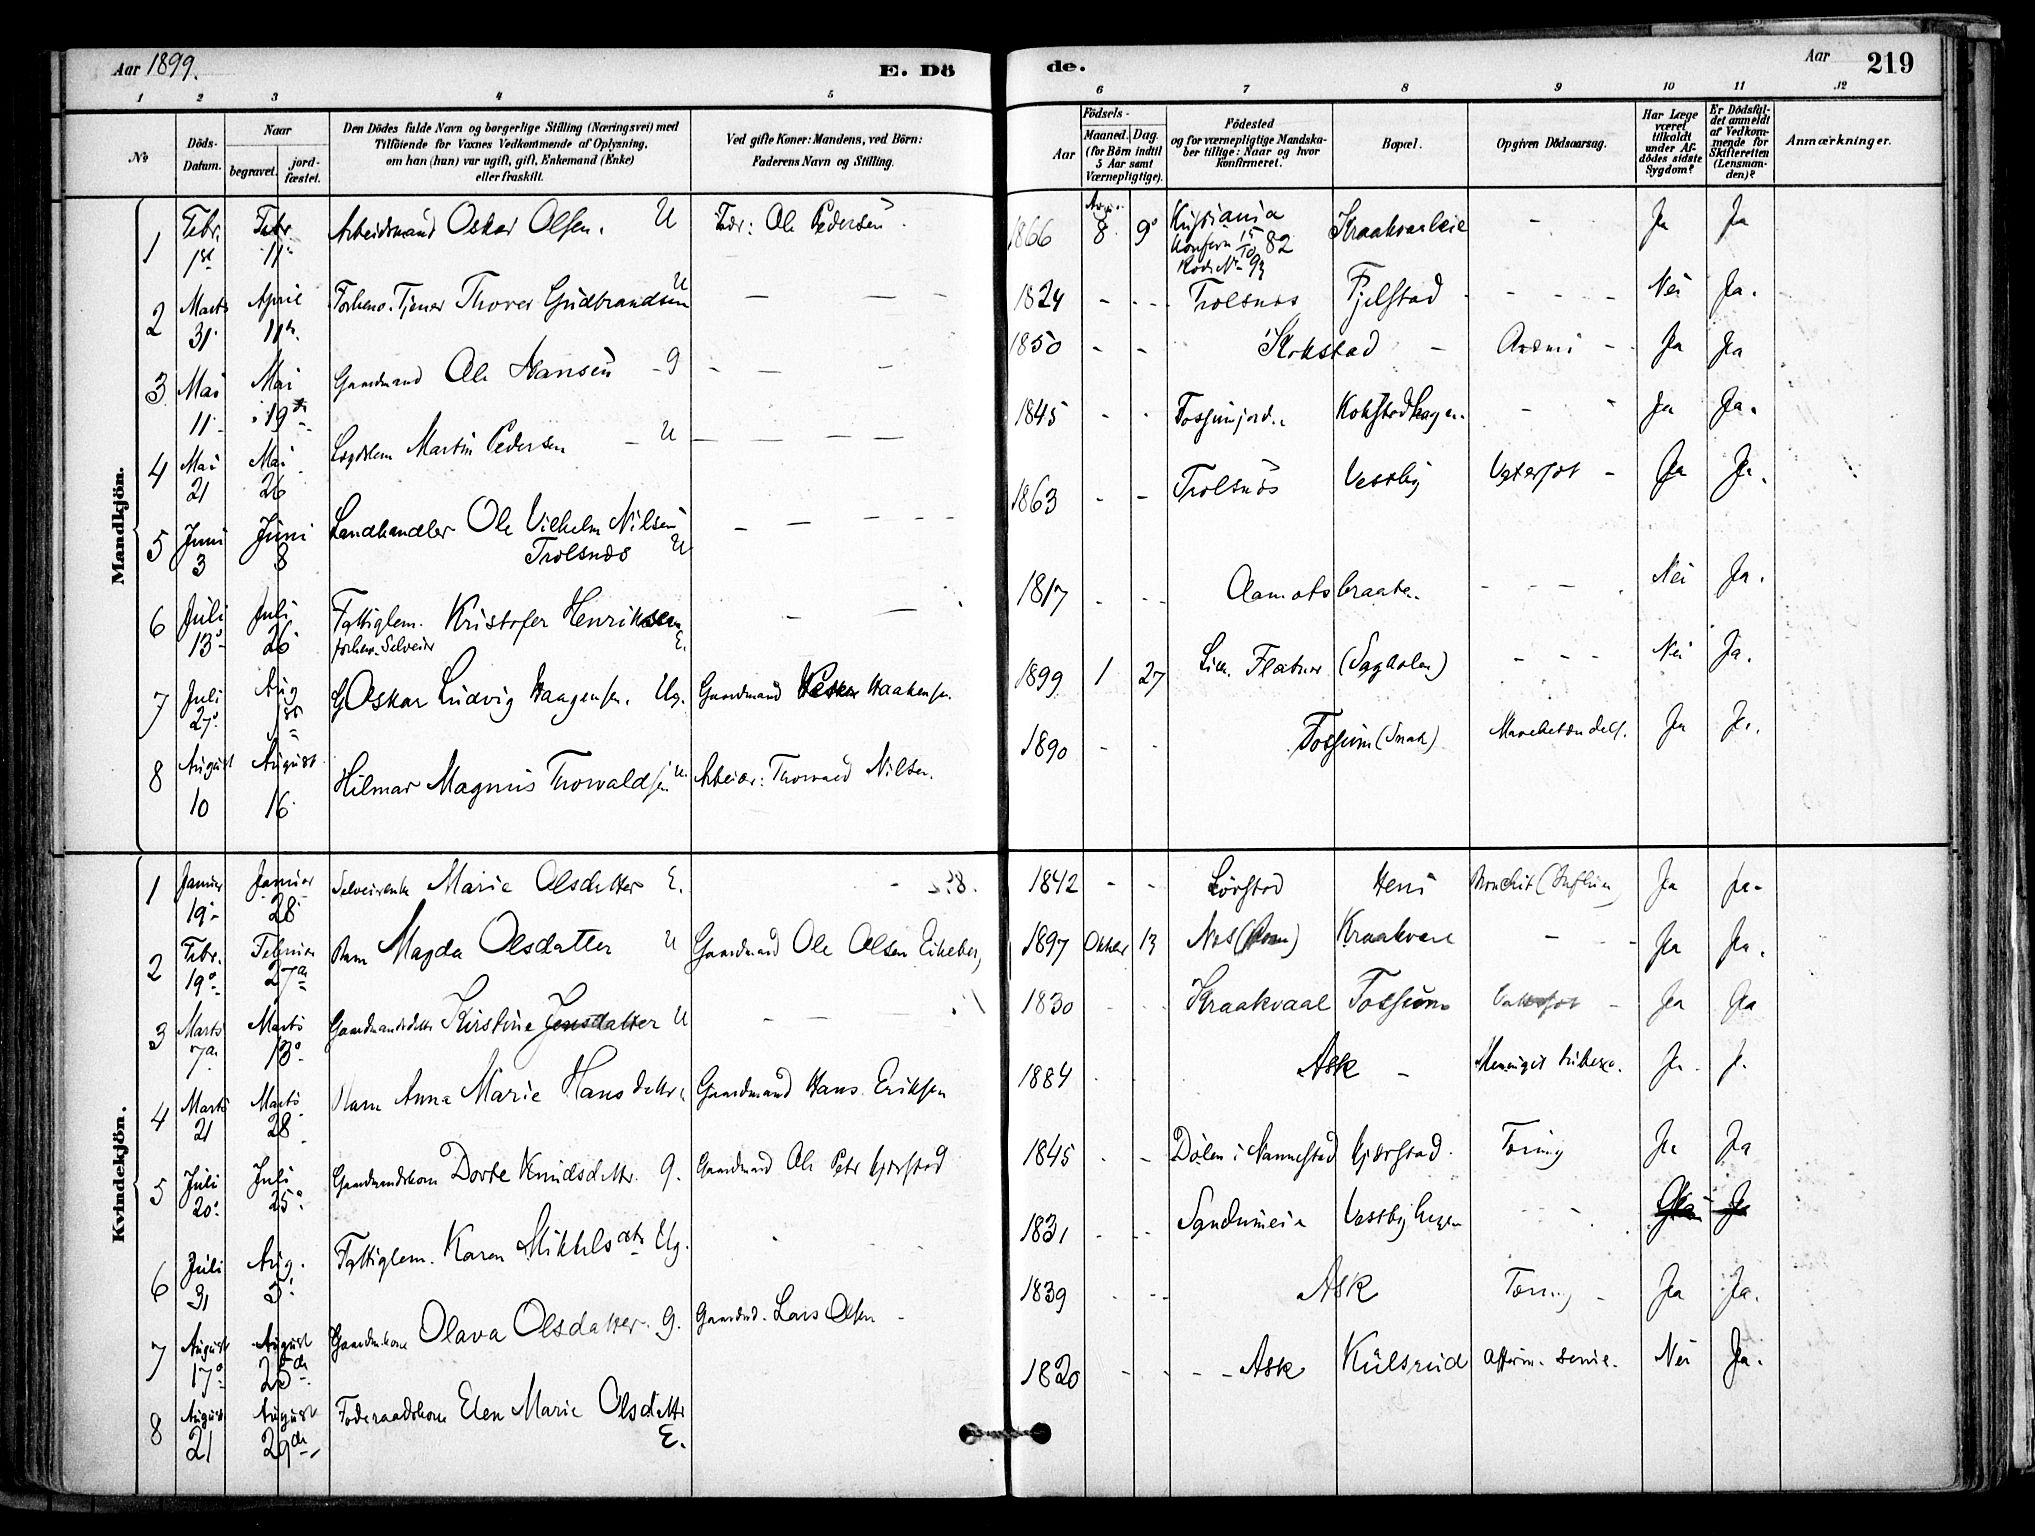 Aar 1899.
E. Dö
de.
Aar
219
1 2 3 4 5 6 7 8 9 10 11 12
No
Döds-Datum.
Naar
begravet.
jord-fæstet.
Den Dödes fulde Navn og borgerlige Stilling (Næringsvei) med
Tilföiende for Voxnes Vedkommende af Oplysning,
om han (hun) var ugift, gift, Enkemand (Enke)
eller fraskilt.
Ved gifte Koner: Mandens, ved Börn:
Faderens Navn og Stilling.
Födsels-
Aar
Maaned. Dag.
(for Börn indtil
5 Aar samt
Værnepligtige).
Födested
og for værnepligtige Mandska-
ber tillige: Naar og hvor
konfirmeret.
Bopæl.
Opgiven Dödsaarsag.
Har Læge
været
tilkaldt
under Af-
dödes sidste
Sygdom?
Er Dödsfal-
det anmeldt
af Vedkom-
mende for
Skifteretten
(Lensman-
den)?
Anmærkninger.
Mandkjön.
1 Febr. 1st Febr. 11 Arbeidsmand Oskar Olsen. U Fadr: Ole Pedersen. 1866 8 9 Kristiania Konfirm 15/10 82 Kraakvaaleie - Ja Ja
2 Marts 31 April 11te Forhenv. Tjener Thorer Gudbrandsen U - - - 1824 - - Trolsnæs Fjelstad - - - Nei Ja.
3 Mai 11 Mai 19de Gaardmand Ole Hansen - g - - - 1850 - - Kokstad - - Ja Ja
4 Mai 21 Mai 26 Lægdslem Martin Pedersen - U - - - - 1845 - - Fossumjord. Kokstadhagen. - - Ja Ja.
5 Juni 3 Juni 8 Landhandler Ole Vilhelm Nilsen Trolsnæs U - - - - 1863 - - Trolsnæs Vestby - Ja Ja.
6 Juli 13 Juli 26 Fattiglem. Kristofer Henriksen forhenv. Selveier E. - - 1817 - - Aamotsbraaten. - - - Nei Ja.
7 Juli 27 Aug Oskar Ludvig Haagensen. Ug. Gaardmand Haakensen. 1899 1 27 Flatner (Sagdalen) - - - Nei Ja.
8 August 10 August 16 Hilmar Magnus Thorvaldsen U. Arbeider: Thorvald Nilsen. 1890 - - Fossum Ja Ja.
Kvindekjön.
1 Januar 19 Januar 28 Selveierenke Marie Olsdatter E. - 1842 - - Lörstad Bronchit Ja Ja
2 Febr. 19 Februar 27de Barn Magda Olsdatter U Gaardmand Ole Olsen 1897 Oktbr 13 Nes Kraakvaal - - Ja Ja.
3 Marts 7de Marts 13 Gaardmandsdatter Kirstine Jensdatter U - - - 1830 - - Kraakvaal Fossum - Ja Ja
4 Marts 21 Marts 28 Barn Anna Marie Hansdatter Gaardmand Hans Eriksen 1884 - - Ask - Ja J.
5 Juli 20 Juli 25 Gaardmandskone Dorte Knudsdatter. g. Gaardmand Ole Peter Kjærstad 1845 - - Dölen i Nannestad Kjærstad. Tæring Ja Ja
6 Juli 31 Aug. 5 Fattiglem. Karen Mikkelsdatter Ug. 1831 - - Vestbyhagen - - Ja
7 August 17 August 25de Gaardmkone Olava Olsdatter. g. Gaardmd. Lars Olsen - 1839 - - Ask Tæring - Ja Ja.
8 August 21 August 29de Föderaadskone Elen Marie Olsdatter E. 1820 - - - Ask Kulsrud Nei Ja.